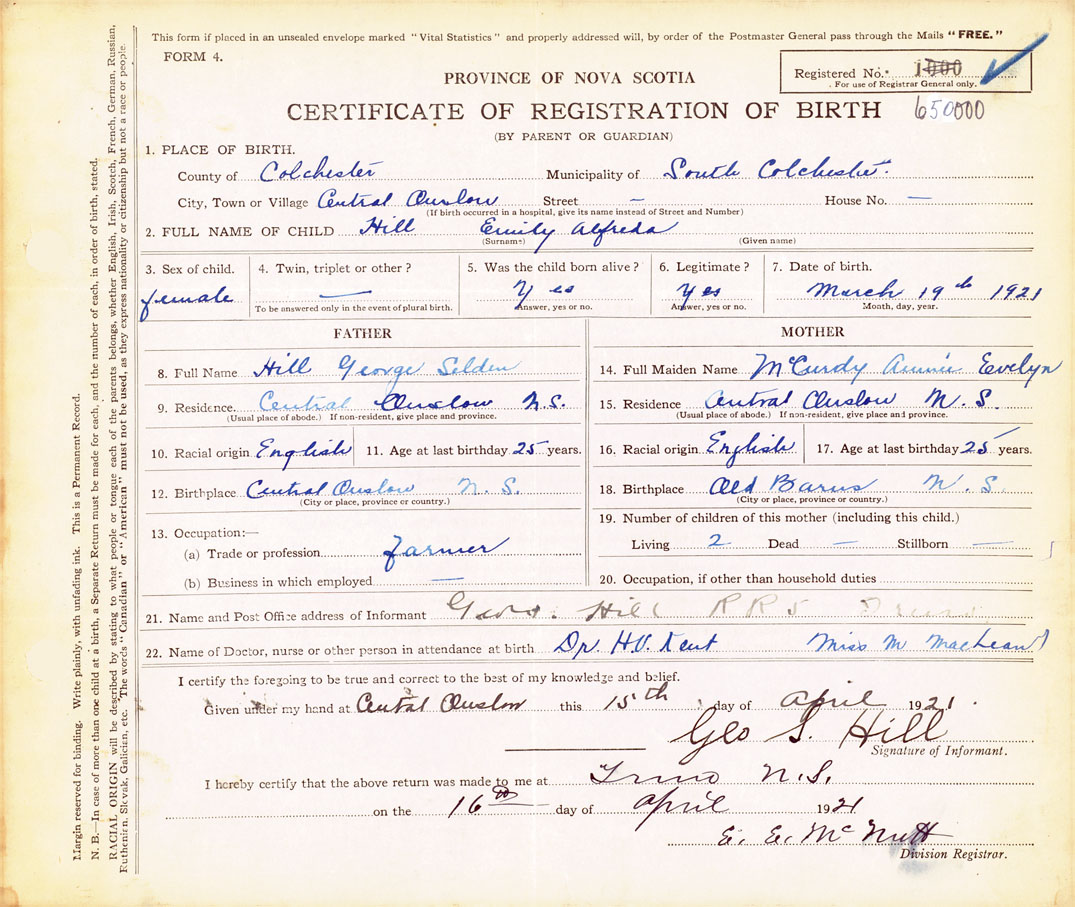 This form if placed in an unsealed envelope marked "Vital Statistics" and properly addressed will, by order of the Postmaster General pass through the Mails "FREE."
FORM 4.
PROVINCE OF NOVA SCOTIA
Registered No. 1000
For use of Registrar General only.
CERTIFICATE OF REGISTRATION OF BIRTH 650000
(BY PARENT OR GUARDIAN)
1. PLACE OF BIRTH.
County of Colchester Municipality of South Colchester.
City, Town or Village Central Onslow Street — House No. —
(If birth occurred in a hospital, give its name instead of Street and Number)
2. FULL NAME OF CHILD Hill Emily Alfreda
(Surname) (Given name)
3. Sex of child. 4. Twin, triplet or other? 5. Was the child born alive? 6. Legitimate? 7. Date of birth.
female — Yes Yes March 19th 1921
To be answered only in the event of plural birth. Answer, yes or no. Answer, yes or no. Month, day, year.
FATHER
8. Full Name Hill George Selden
9. Residence. Central Onslow N.S.
(Usual place of abode.) If non-resident, give place and province.
10. Racial origin English 11. Age at last birthday 25 years.
12. Birthplace Central Onslow N.S.
(City or place, province or country.)
13. Occupation:—
(a) Trade or profession farmer
(b) Business in which employed —
MOTHER
14. Full Maiden Name McCurdy Annie Evelyn
15. Residence Central Onslow N.S.
(Usual place of abode.) If non-resident, give place and province.
16. Racial origin English 17. Age at last birthday 25 years.
18. Birthplace Old Barns N.S.
(City or place, province or country.)
19. Number of children of this mother (including this child.)
Living 2 Dead — Stillborn —
20. Occupation, if other than household duties
21. Name and Post Office address of Informant Geo. Hill RR5
22. Name of Doctor, nurse or other person in attendance at birth Dr. H.V. Kent Miss M MacLean
I certify the foregoing to be true and correct to the best of my knowledge and belief.
Given under my hand at Central Onslow this 15th day of April 1921.
Geo S. Hill
Signature of Informant.
I hereby certify that the above return was made to me at Truro N.S.
on the 16th day of April 1921
E. E. McNutt
Division Registrar.
Margin reserved for binding. Write plainly, with unfading ink. This is a Permanent Record.
N. B.—In case of more than one child at a birth, a Separate Return must be made for each, and the number of each, in order of birth, stated.
RACIAL ORIGIN will be described by stating to what people or tongue each of the parents belongs, whether English, Irish, Scotch, French, German, Russian,
Ruthenian, Slovak, Galician, etc. The words "Canadian" or "American" must not be used, as they express nationality or citizenship but not a race or people.